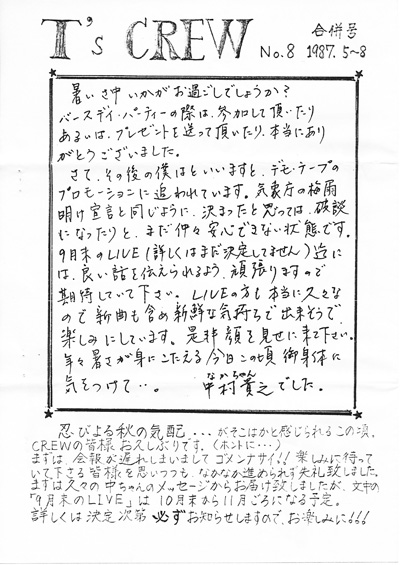 T's CREW
合併号
No.8 1987. 5~8
暑いさ中いかがお過ごしでしょうか?
バースデイ・パーティーの際は、参加して頂いたり
あるいは、プレゼントを送って頂いたり、本当にあり
がとうございました。
さて、その後の僕はといいますと、デモ・テープの
プロモーションに追われています。気象庁の梅雨
明け宣言と同じように、決まったと思っては、破談
になったりと、まだ仲々安心できない状態です。
9月末のLIVE(詳しくはまだ決定してません)迄に
は、良い話を伝えられるよう、頑張りますので
期待していて下さい。LIVEの方も本当に久々な
ので新曲も含め新鮮な気持ちで出来そうで、
楽しみにしています。是非顔を見せに来て下さい。
年々暑さが身にこたえる今日この頃御身体に
気をつけて・・。
なかちゃん
中村貴之でした。
忍びよる秋の気配...がそこはかと感じられるこの頃、
CREWの皆様お久しぶりです。(ホントに…)
まずは会報が遅れしまいましてゴメンナサイ!! 楽しみに待って
いて下さる皆様を思いつつも、なかなか進められず失礼致しました。
まずは久々の中ちゃんのメッセージからお届け致しましたが、文中の
「9月末のLIVE」は10月末から11月ごろになる予定。
詳しくは決定次第必ずお知らせしますので、お楽しみに!!!